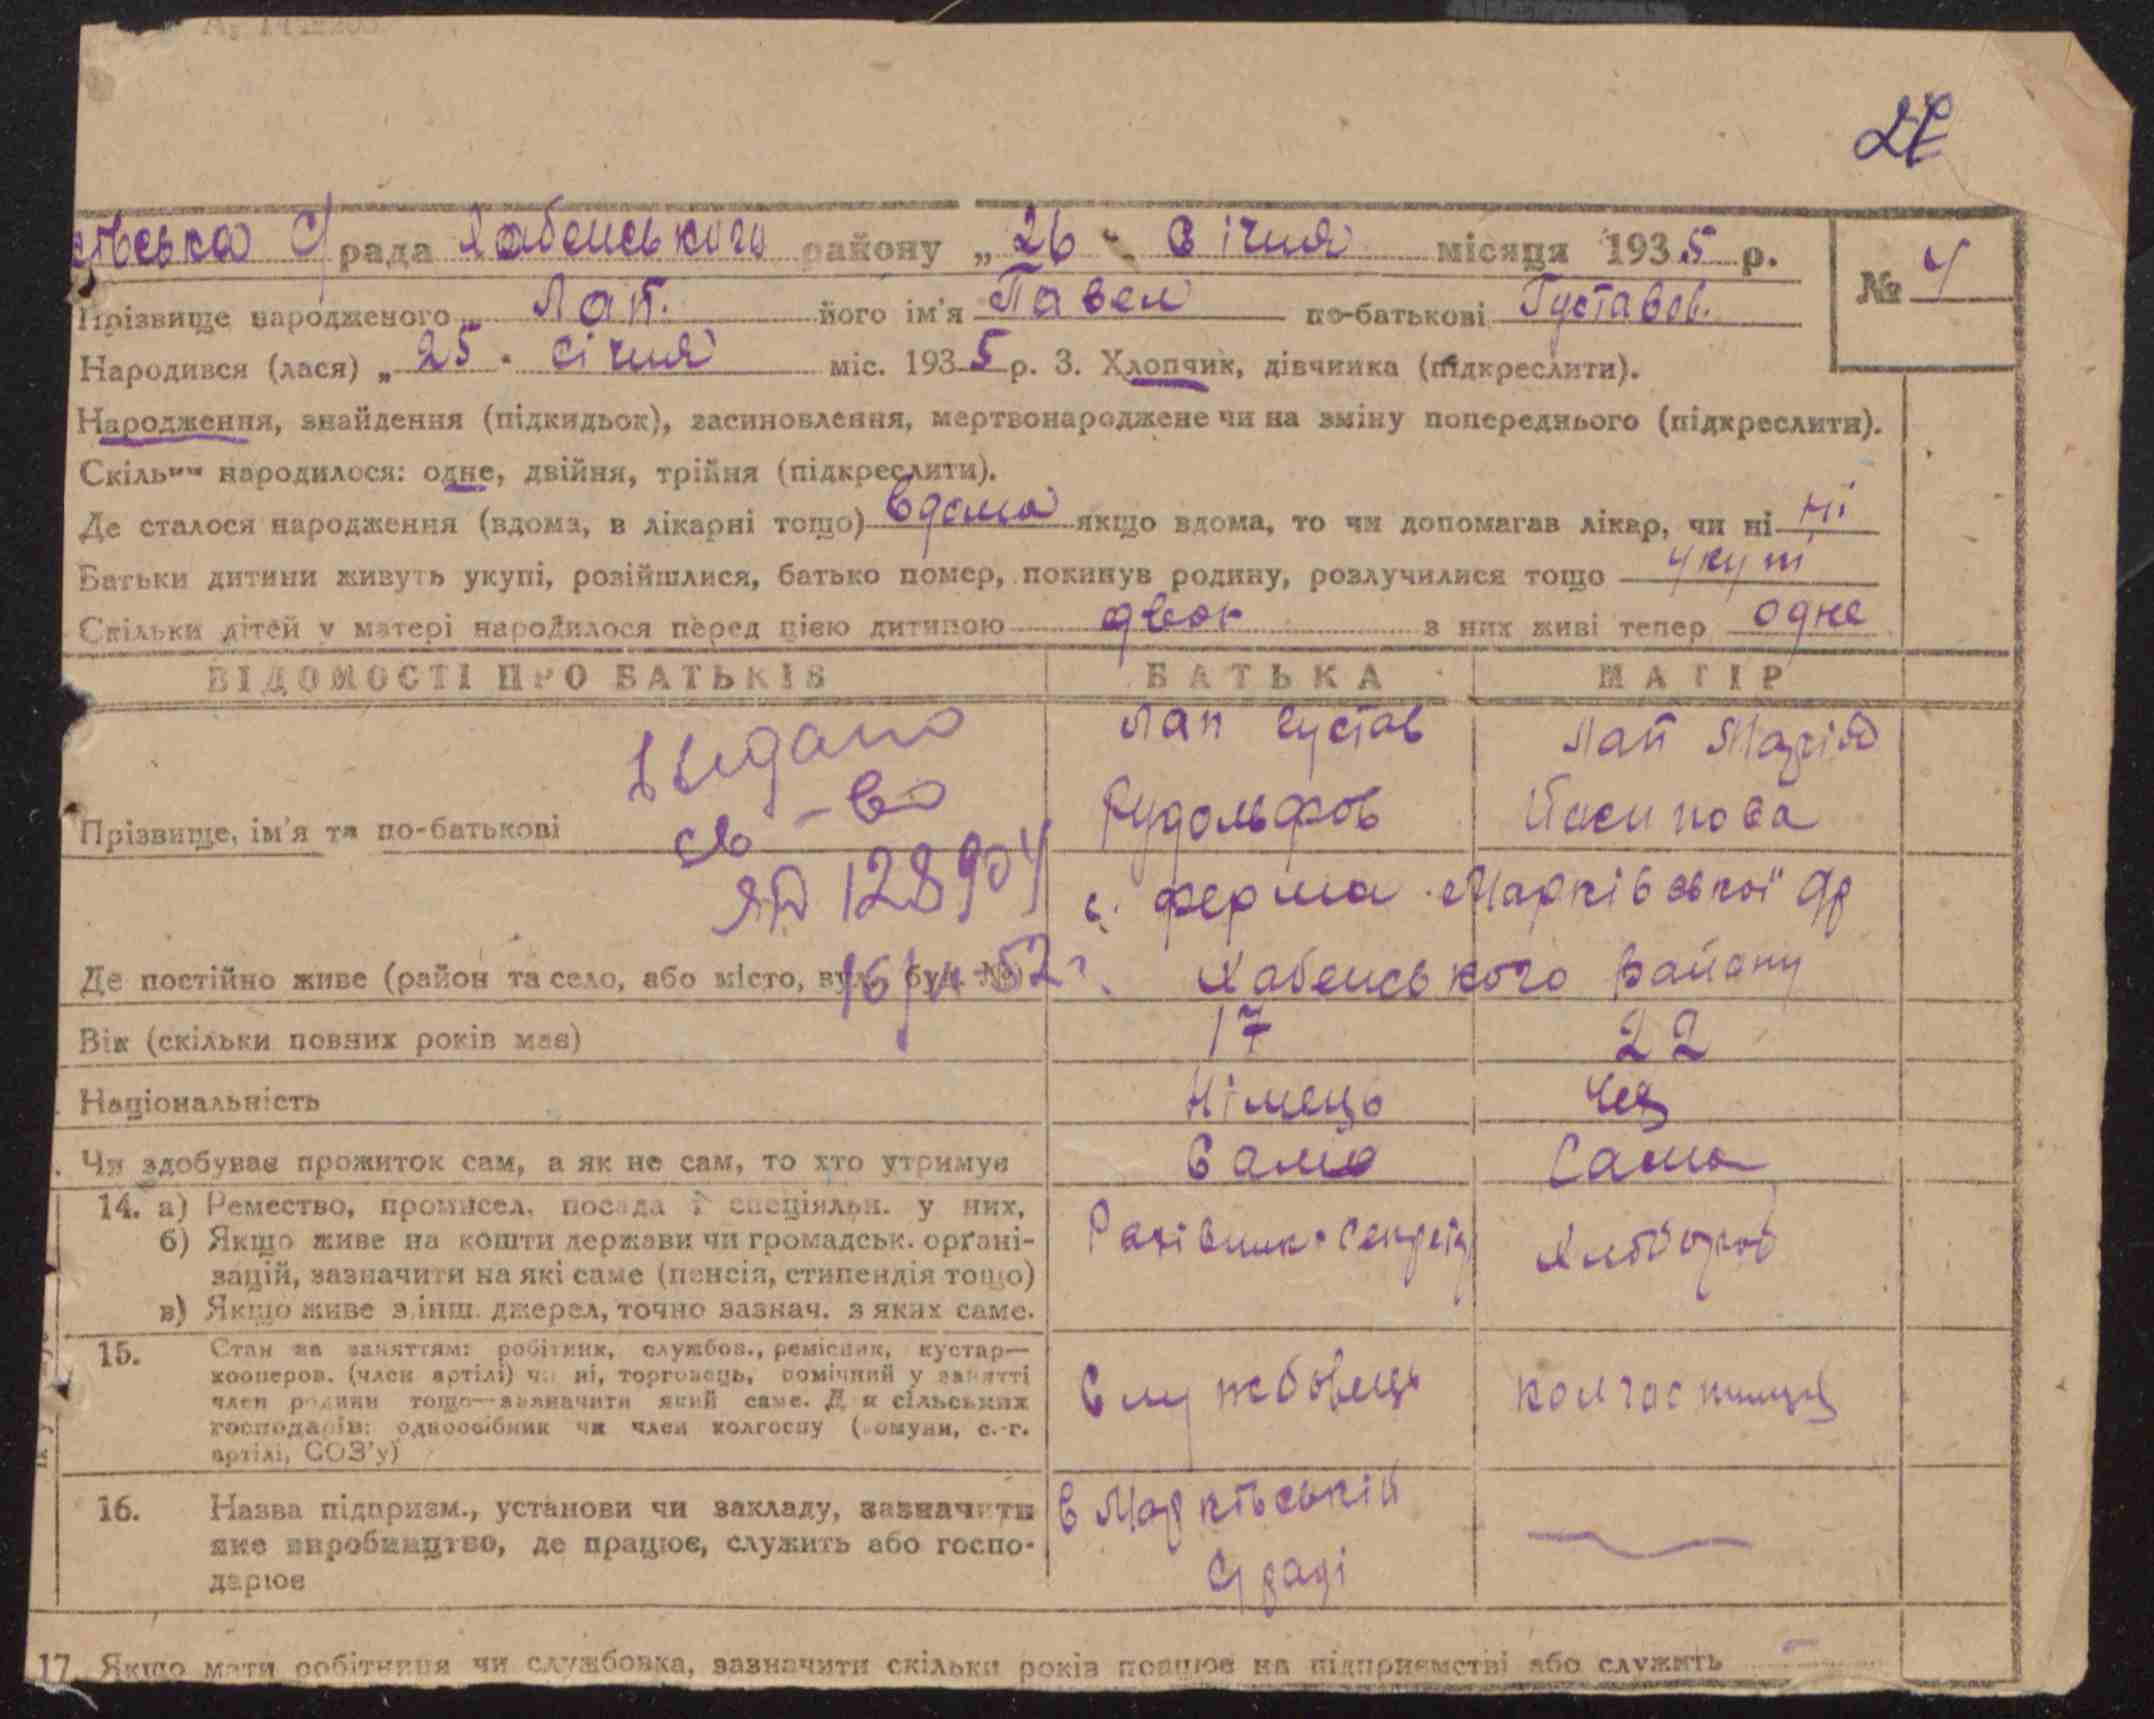 27
івська С/рада Хабенського району „ 26 " січня місяця 1935 р.
№ 4
Прізвище народженого Лап. його ім'я Павел по-батькові Густавов.
Народився (лася) „ 25 " січня міс. 1935 р. 3. Хлопчик, дівчинка (підкреслити).
Народження, знайдення (підкидьок), засиновлення, мертвонароджене чи на зміну попереднього (підкреслити).
Скільки народилося: одне, двійня, трійня (підкреслити).
Де сталося народження (вдома, в лікарні тощо) вдома якщо вдома, то чи допомагав лікар, чи ні ні
Батьки дитини живуть укупі, розійшлися, батько помер, покинув родину, розлучилися тощо укупі
Скільки дітей у матері народилося перед цією дитиною двох з них живі тепер одне
ВІДОМОСТІ ПРО БАТЬКІВ БАТЬКА МАТІР
Видано
св-во
128904
Прізвище, ім'я та по-батькові
Лап Густав
Рудольфов
Лап Марія
Йосипова
Де постійно живе (район та село, або місто, вул. буд. №)
52 г.
с. ферма Марківської с/р
Хабенського району
Вік (скільки повних років має) 17 22
Національність Німець Чех
Чи здобуває прожиток сам, а як не сам, то хто утримує Само Сама
14. а) Ремество, промисел, посада і спеціяльн. у них,
б) Якщо живе на кошти держави чи громадськ. орґані-
зацій, зазначити на які саме (пенсія, стипендія тощо)
в) Якщо живе з інш. джерел, точно зазнач. з яких саме.
Рахівник секрет. Хлібороб
15. Стан за заняттям: робітник, службов., ремісник, кустар—
кооперов. (член артілі) чи ні, торговець, помічний у занятті
член родини тощо—зазначити який саме. Для сільських
господарів: одноосібник чи член колгоспу (комуни, с.-г.
артілі, СОЗ'у)
Службовець колгоспниця
16. Назва підприэм., установи чи закладу, зазначити
яке виробництво, де працює, служить або госпо-
дарює
в Марківській
с/раді
17. Якщо мати робітниця чи службовка, зазначити скільки років працює на підприємстві або служить